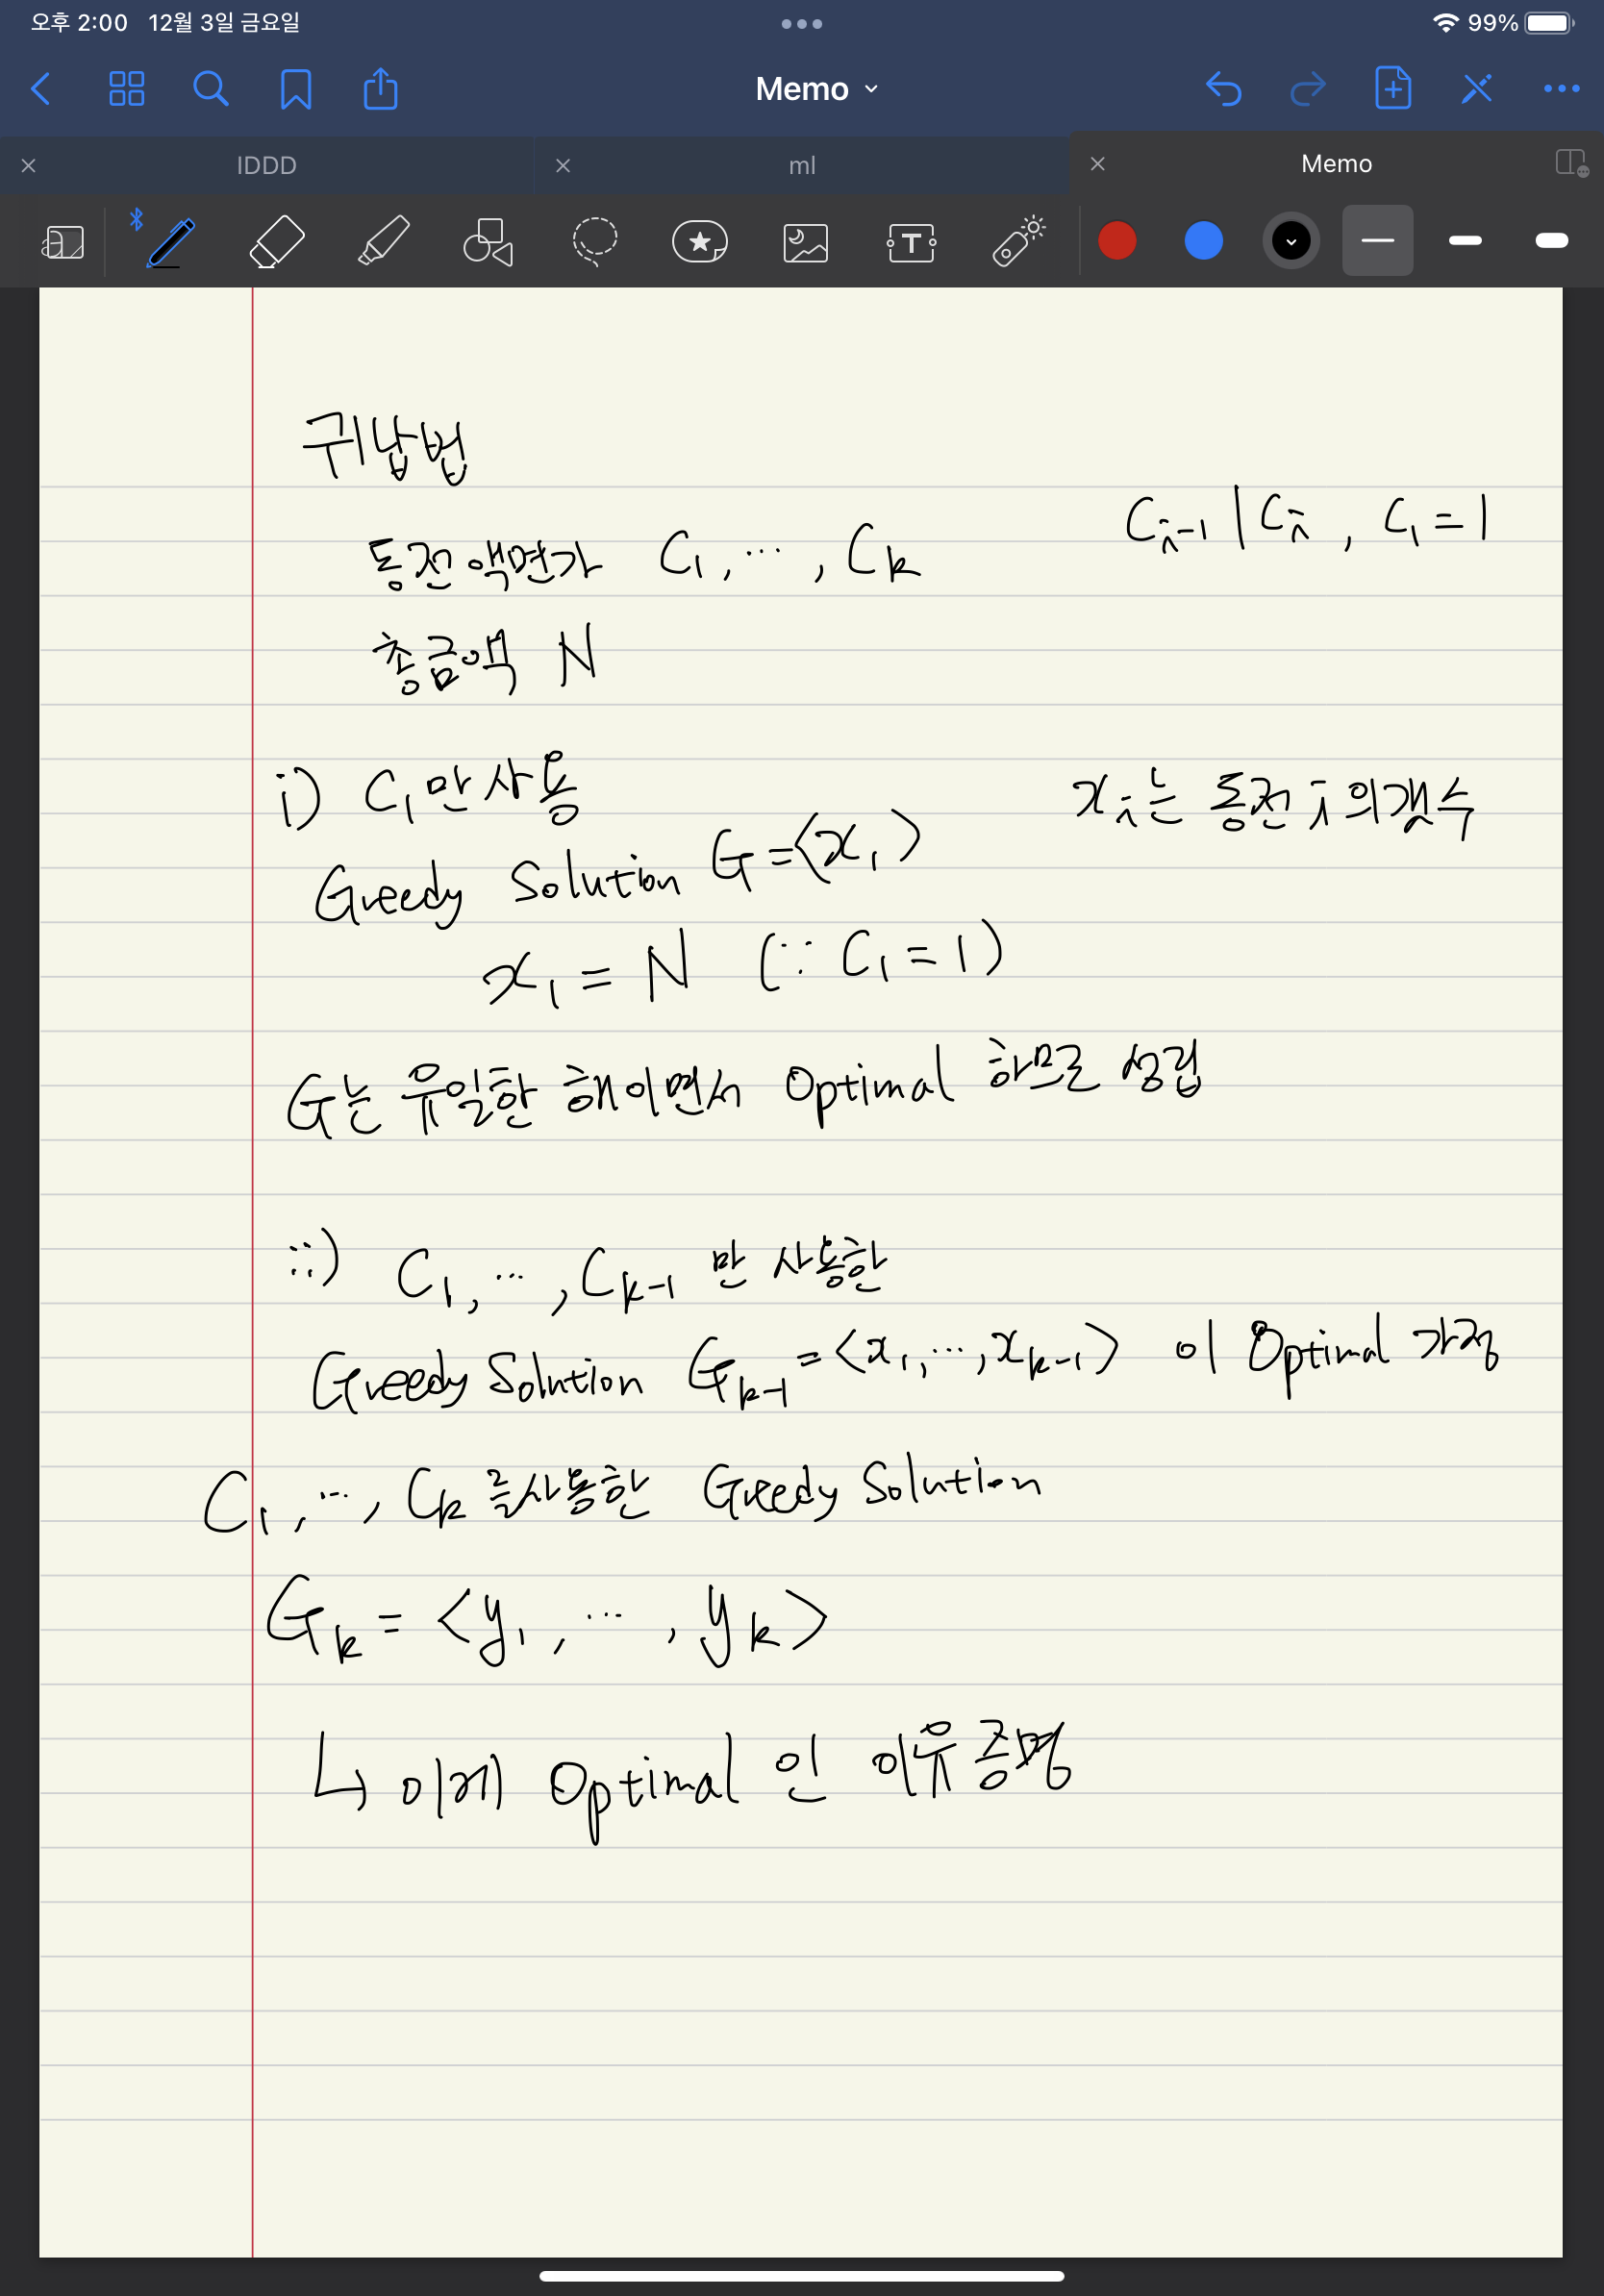 오후 2:00 12월 3일 금요일
99%
Memo
IDDD
ml
Memo
T
귀납법
동전액면가 C₁, ⋯, Cₖ
Cᵢ₋₁ | Cᵢ, C₁ = 1
총금액 N
i) C₁만 사용
xᵢ는 동전 i의 갯수
Greedy Solution G = <x₁>
x₁ = N (∵ C₁ = 1)
G는 유일한 해이면서 Optimal 하므로 성립
ii) C₁, ⋯, Cₖ₋₁ 만 사용한
Greedy Solution Gₖ₋₁ = <x₁, ⋯, xₖ₋₁> 이 Optimal 가정
C₁, ⋯, Cₖ 를 사용한 Greedy Solution
Gₖ = <y₁, ⋯, yₖ>
↳ 이게 Optimal 인 이유 증명